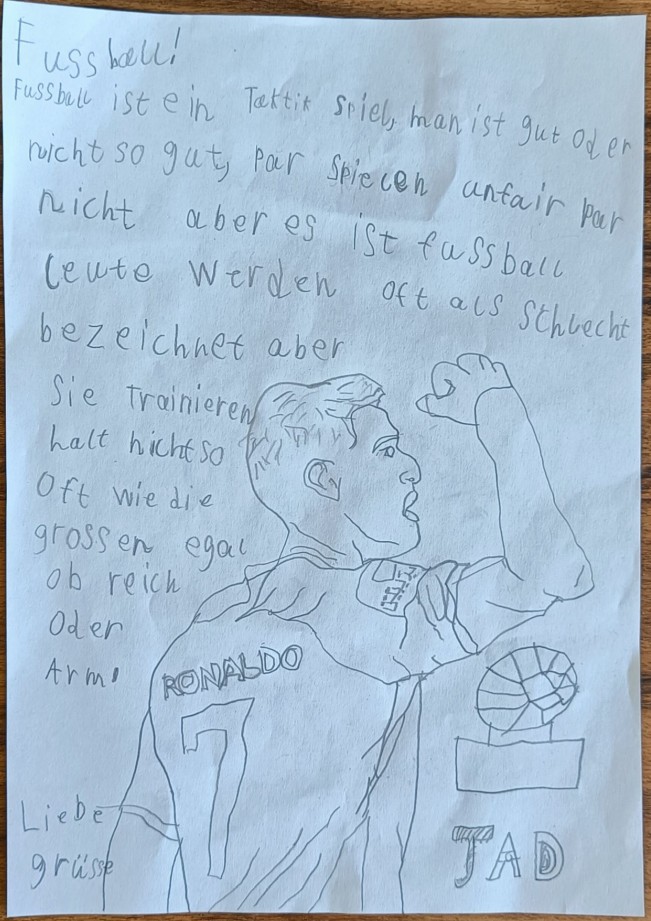 Fussball!
Fussball ist ein Taktik spiel, man ist gut oder
nicht so gut, par spielen unfair par
nicht aber es ist fussball
leute werden oft als schlecht
bezeichnet aber
Sie trainieren
halt nicht so
Oft wie die
grossen egal
ob reich
Oder
Arm!
RONALDO
7
Liebe
grüsse
JAD